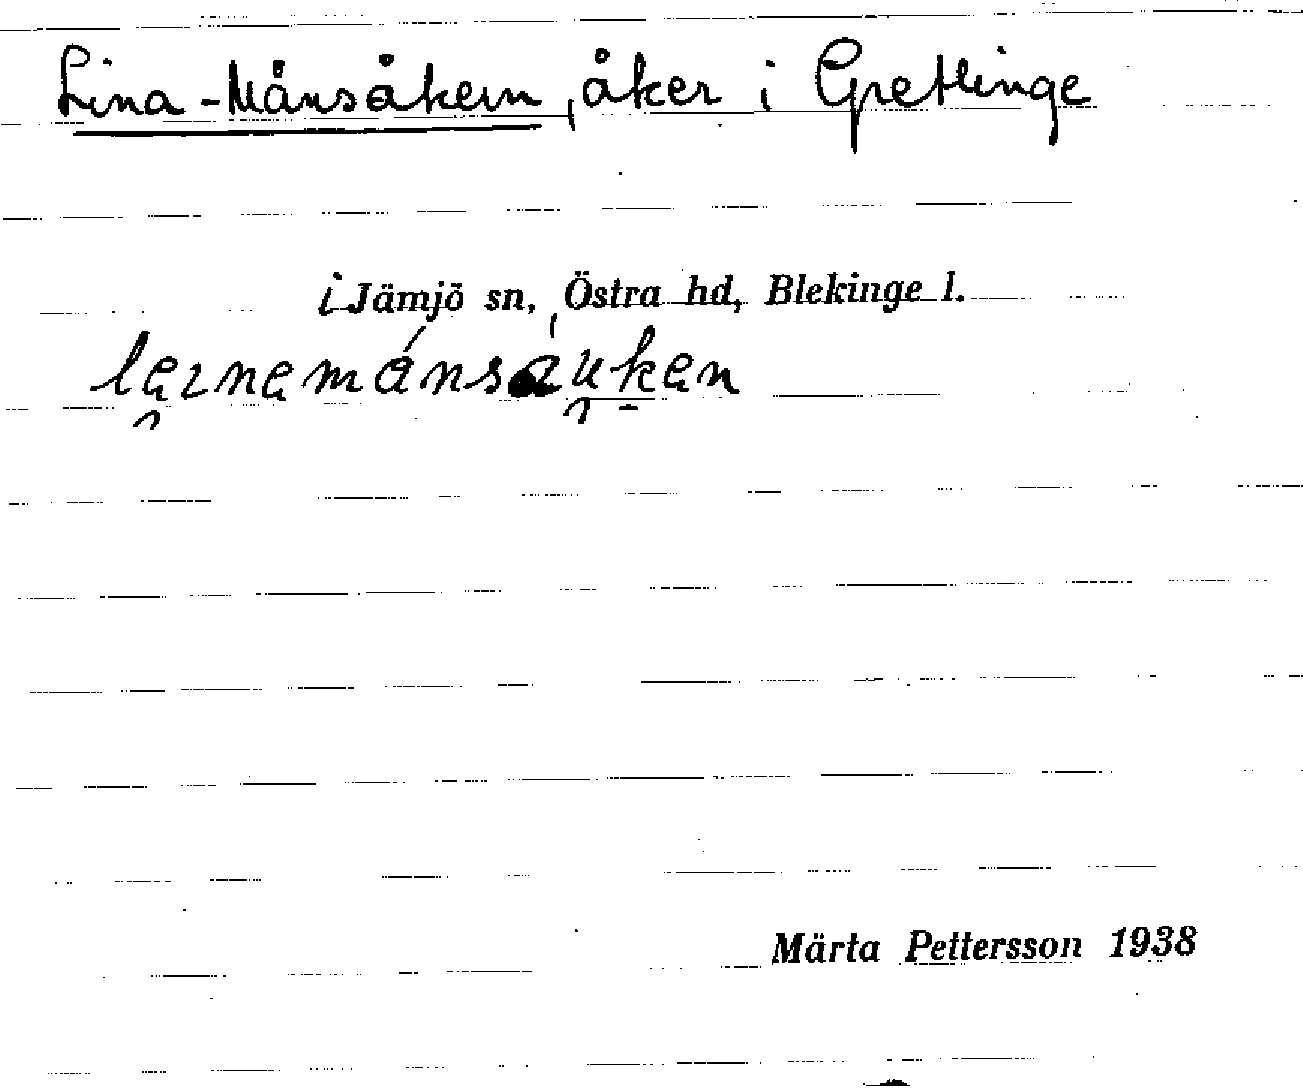 Lina-Månsåkern, åker i Gretlinge
i Jämjö sn, Östra hd, Blekinge l.
Märta Pettersson 1938